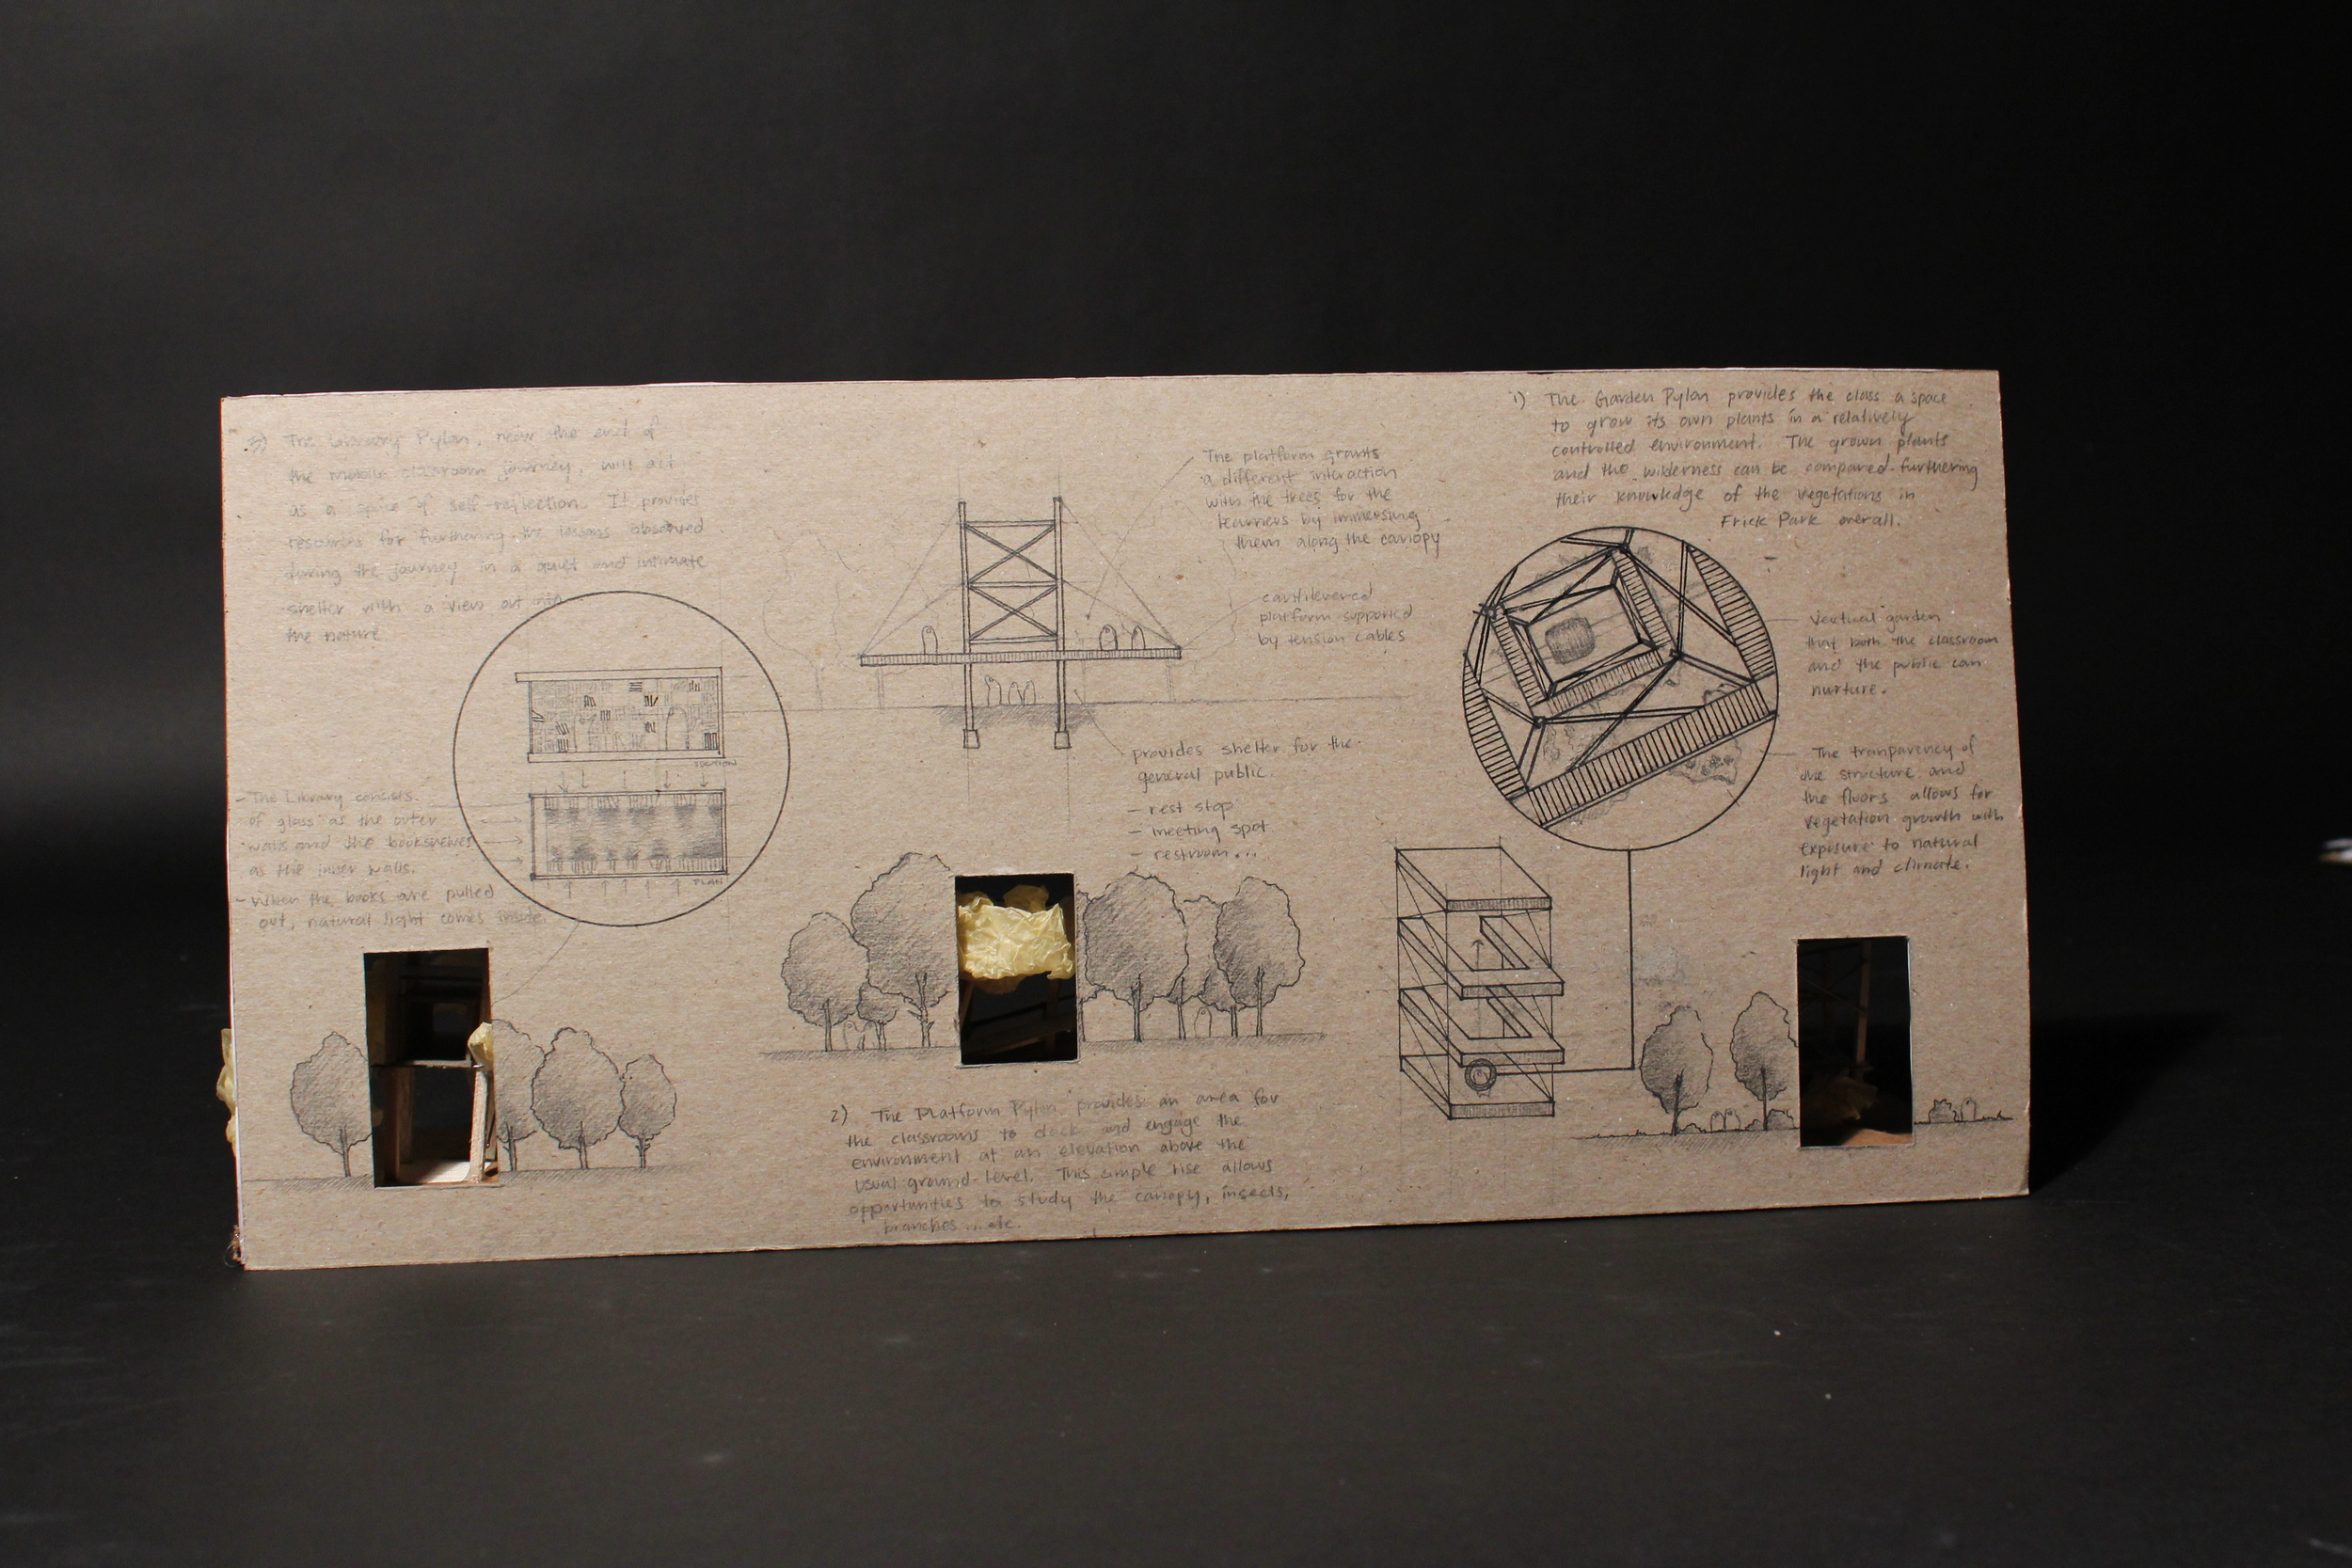 3) The Library Pylon, near the end of
the mobile classroom journey, will act
as a space of self-reflection. It provides
resources for furthering the lessons observed
during the journey in a quiet and intimate
shelter with a view out into
the nature
SECTION
PLAN
- The Library consists
of glass as the outer
walls and the bookshelves
as the inner walls.
- When the books are pulled
out, natural light comes inside.
The platform grants
a different interaction
with the trees for the
learners by immersing
them along the canopy
cantilevered
platform supported
by tension cables
provides shelter for the
general public.
- rest stop
- meeting spot
- restroom...
2) The Platform Pylon provides an area for
the classrooms to dock and engage the
environment at an elevation above the
usual ground-level. This simple rise allows
opportunities to study the canopy, insects,
branches...etc.
1) The Garden Pylon provides the class a space
to grow its own plants in a relatively
controlled environment. The grown plants
and the wilderness can be compared-furthering
their knowledge of the vegetations in
Frick Park overall.
Vertical garden
that both the classroom
and the public can
nurture.
The tranparency of
the structure and
the floors allows for
vegetation growth with
exposure to natural
light and climate.